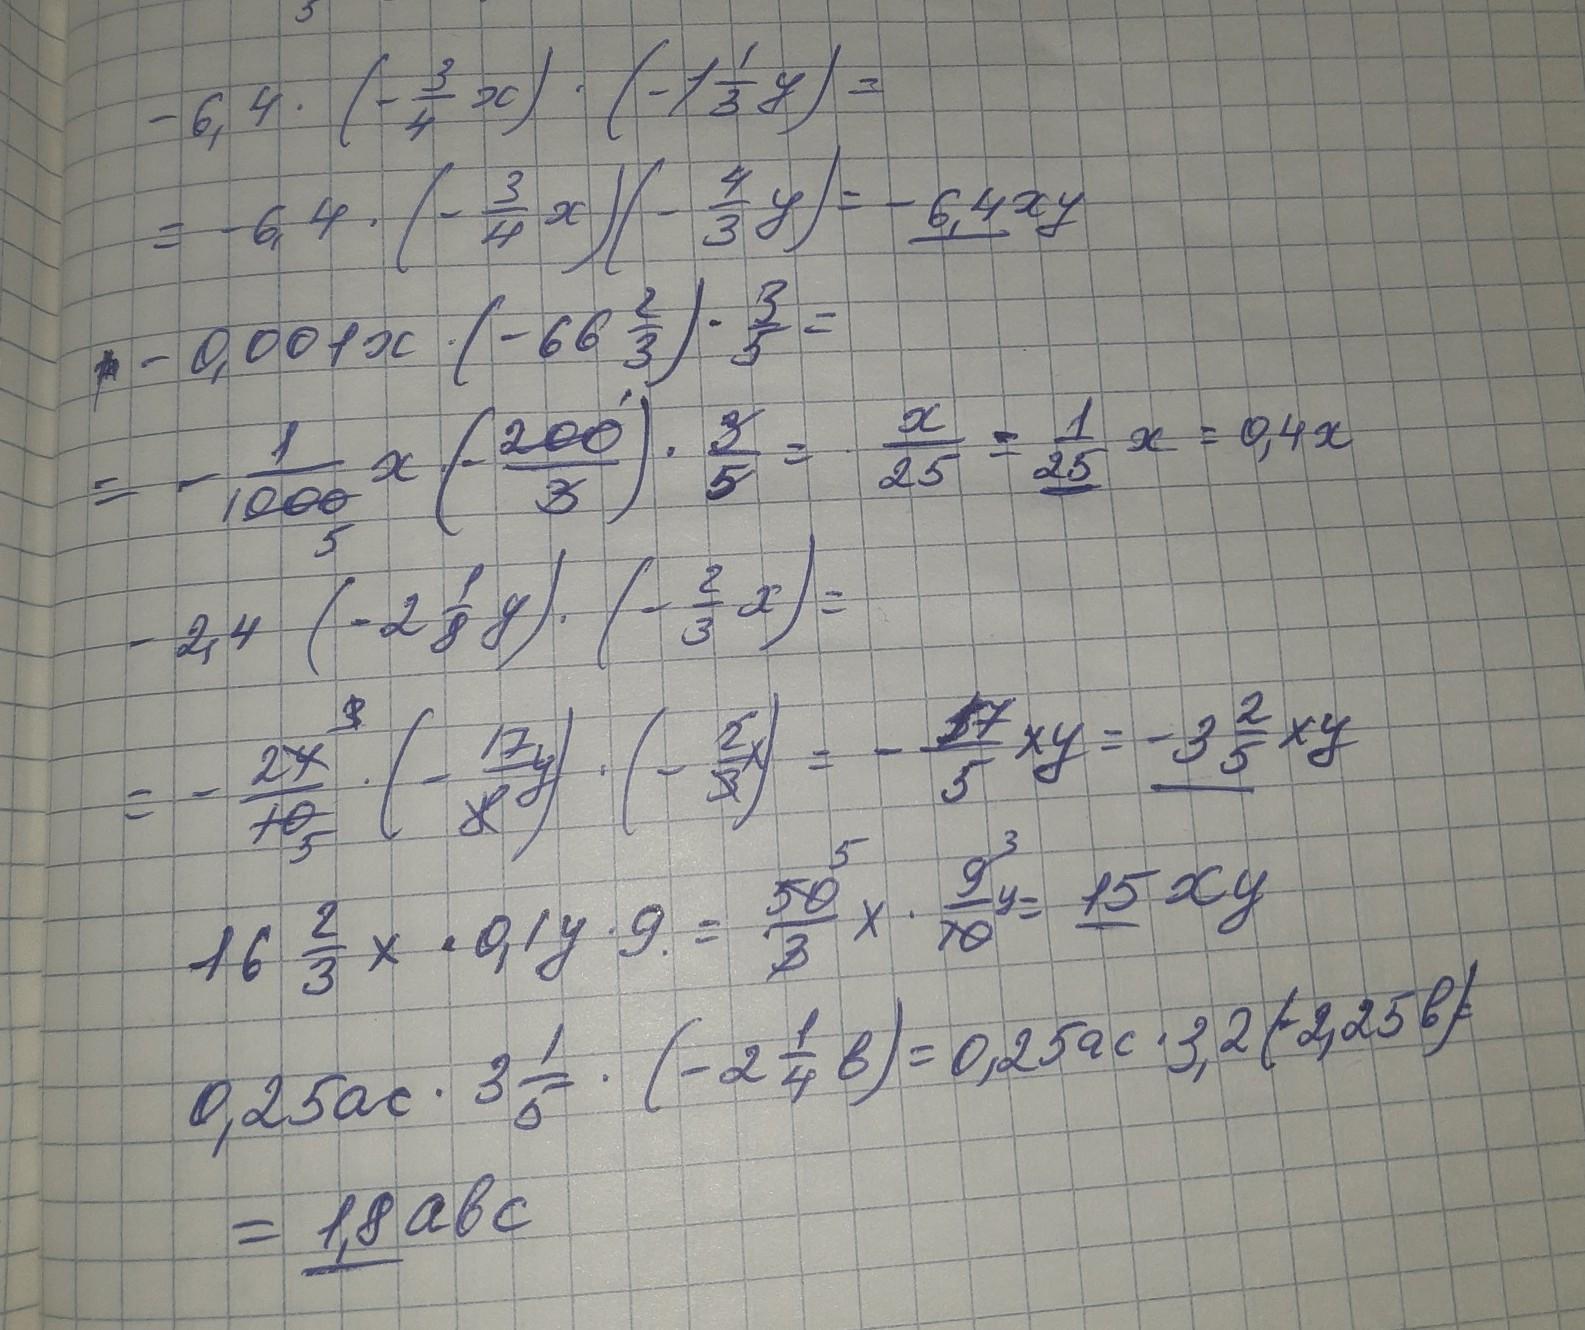 -6,4 · (-3/4 x) · (-1 1/3 y) =
= -6,4 · (-3/4 x)(-4/3 y) = -6,4xy
-0,001x · (-66 2/3) · 3/5 =
= -1/1000 x · (-200/3) · 3/5 = x/25 = 1/25 x = 0,4x
-2,4 (-2 1/8 y) · (-2/3 x) =
= -24/10 · (-17y/8) · (-2/3 x) = -17/5 xy = -3 2/5 xy
16 2/3 x · 0,1y · 9 = 50/3 x · 9/10 y = 15xy
0,25ac · 3 1/5 · (-2 1/4 в) = 0,25ac · 3,2(-2,25в) =
= 1,8авс